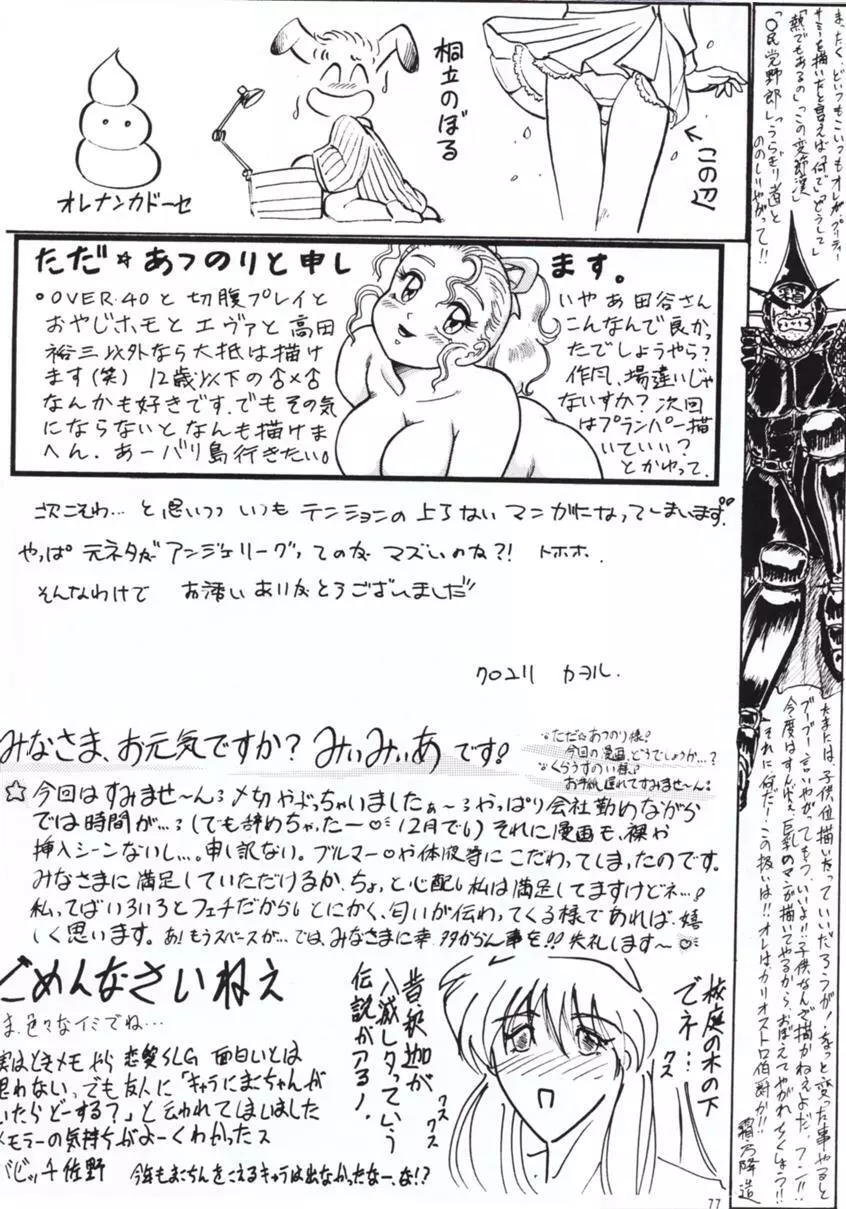 オレナンカドーセ
桐立のぼる
←このへん
ま、たく、どいつもこいつもオレが「プッティー
サミー」を描いたと言えば「何で」「どうして」
「熱でもあるの」「この変節漢」
「○民党野郎」「うらぎり者」と
ののしりやがって!!
ただ☆あつのりと申します。
。OVER・40と切腹プレイと
おやじホモとエヴァと高田
裕三以外なら大抵は描け
ます(笑) 12歳以下の
なんかも好きです。でもその気
にならないとなんも描けま
へん。あーバリ島行きたい。
いやあ田谷さん
こんなんで良かっ
たでしょうやら?
作風、場違いじゃ
ないすか? 次回
はプランパー描
いていい?
とかゆって。
次こそわ…と思いつつ いつも テンションの上らない マンガになってしまいます。
やっぱ 元ネタが アンジェリークってのが マズいのか?! トホホ
そんなわけで お誘い ありがとうございましたー
クロユリ カヲル.
みなさま、お元気ですか? みぃみぃあです!
ただ☆あつのり様?
今回の漫画、どうでしょうか…?
くらうすのい様?
お手紙遅れてすみませ〜ん
☆ 今回はすみませ〜ん 〆切やぶっちゃいましたぁ〜 やっぱり会社勤めながら
では時間が… (でも辞めちゃったー♡ 12月で) それに漫画も、裸や
挿入シーンないし…。申し訳ない。ブルマーや体液等に こだわってしまったのです。
みなさまに満足していただけるか、ちょっと心配 私は満足してますけどネ…!
私ってばいろいろとフェチだから とにかく、匂いが伝わってくる様であれば、嬉
しく思います。あ! もうスペースが… では、みなさまに幸 多からん事を!! 失礼します〜♡
ごめんなさいねえ
ま、色々なイミでね…
実はときメモやら 恋愛SLG 面白いとは
思わない、でも友人に「キャラにまこちゃんが
いたらどーする?」と云われてしまいました
メモラーの気持ちがよーくわかったス
バビッチ佐野 今年もまこちんをこえるキャラは出なかったなー、な!?
校庭の木の下
でネ…
クス
昔、釈迦が
入滅しタっていう
伝説がアる!
クス
クス
たまには、子供位描いたっていいだろうが! ちょっと変った事やると
ブーブー言いやがって、もういいよ!! 子供なんぞ描かねえよだ。フン!!
今度はすんげぇ巨乳のマンガ描いてやるから、おぼえてやがれちくしょう!!
それに何だ! この扱いは!! オレはカリオストロ伯爵か!!
77